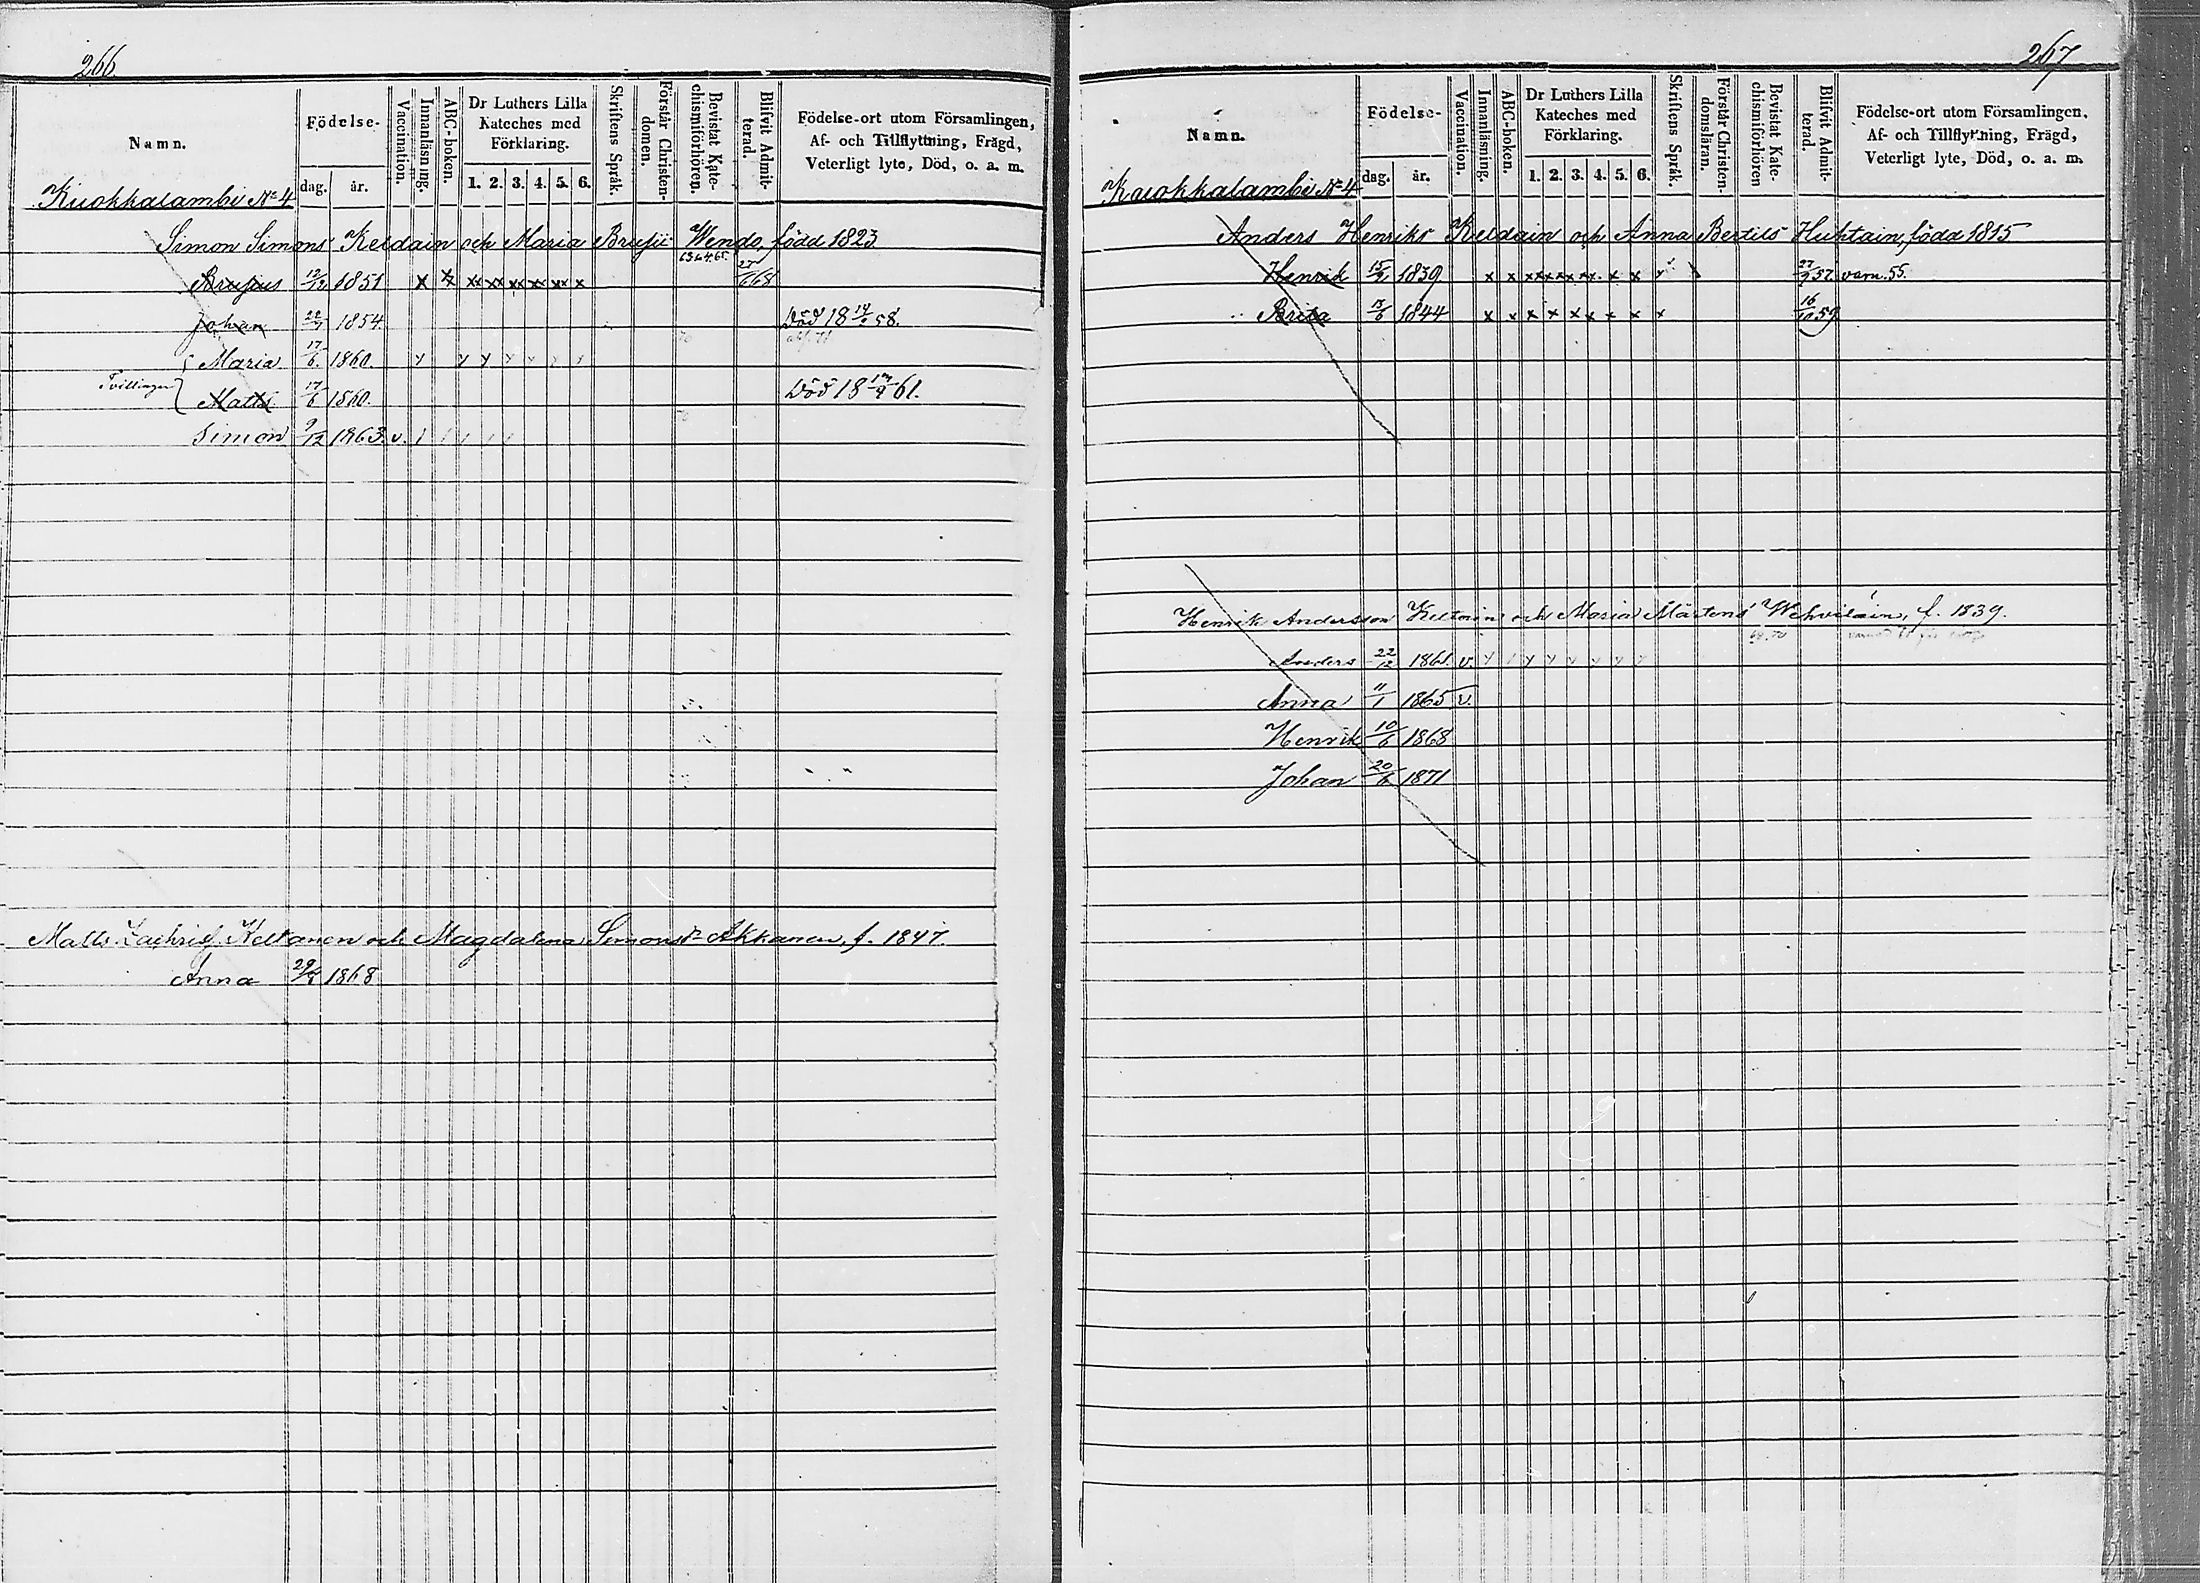 266
Namn.
Födelse-
dag. år.
Vaccination.
Innanläsning.
ABC-boken.
Dr Luthers Lilla Kateches med Förklaring.
1. 2. 3. 4. 5. 6.
Skriftens Språk.
Förstår Christendomen.
Bevistat Katechismiförhören.
Blifvit Admitterad.
Födelse-ort utom Församlingen,
Af- och Tillflyttning, Frägd,
Veterligt lyte, Död, o. a. m.
Kuokkalambi No 4
Simon Simons Keldain och Maria Brusii Wendo, född 1823
63.64.65.
Brusius 12/12 1851 x x x x x x x x 27/6 68
Johan 22/7 1854. Död 18 14/2 58.
Maria 17/6. 1860.
Tvillingar
Matts 17/6 1860. Död 18 14/9 61.
Simon 9/12 1863. v.
Matts Zachrisf. Keltanen och Magdalena Simonsdr Akkanen, f. 1847.
Anna 29/5 1868
267
Namn.
Födelse-
dag. år.
Vaccination.
Innanläsning.
ABC-boken.
Dr Luthers Lilla Kateches med Förklaring.
1. 2. 3. 4. 5. 6.
Skriftens Språk.
Förstår Christendomsläran.
Bevistat Katechismiförhören
Blifvit Admitterad.
Födelse-ort utom Församlingen,
Af- och Tillflyttning, Frägd,
Veterligt lyte, Död, o. a. m.
Kuokkalambi No 4
Anders Henriks Keldain och Anna Bertils Huhtain, född 1815
Henrik 15/2 1839 x x x x x x x x 27/9 57. vacn. 55.
Brita 15/6 1844 x x x x x x x x x 16/10 59
Henrik Andersson Keltain och Maria Mårtens Wehviläin, f. 1839.
69.70
Anders 22/12 1861. v.
Anna 11/1 1865 v.
Henrik 10/6 1868
Johan 20/6 1871